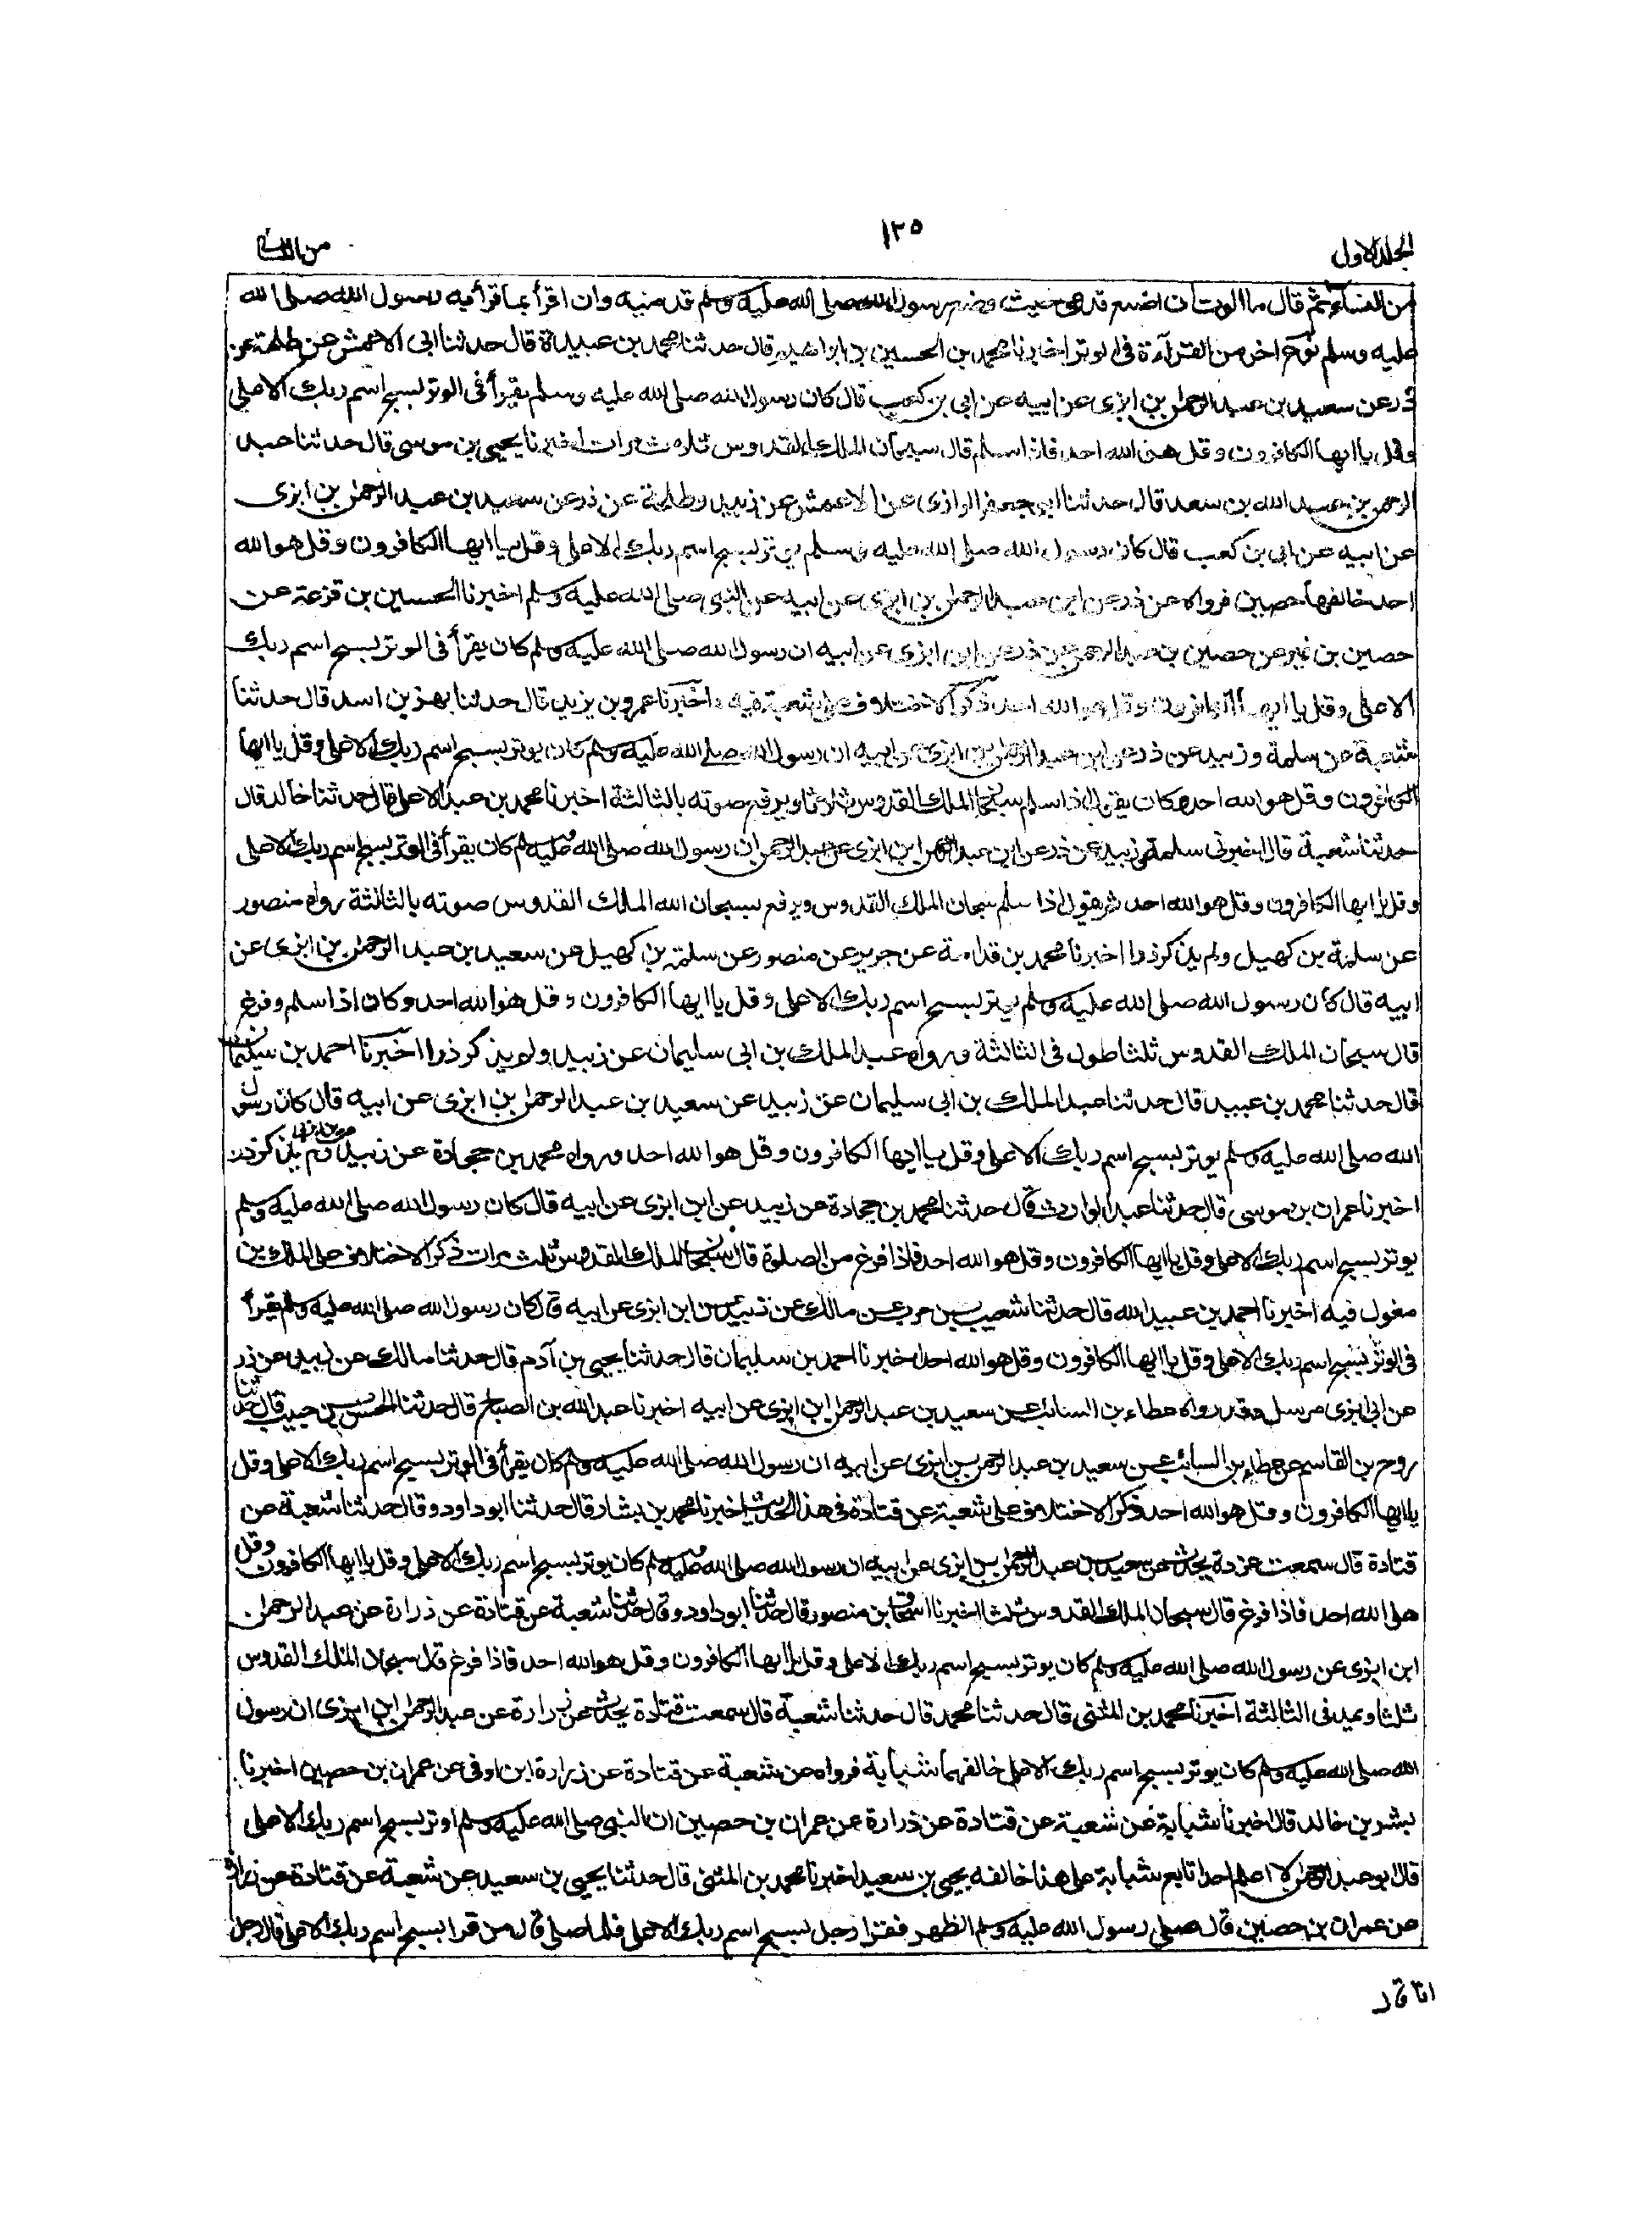 الجلد الاول
١٢٥
من النساء ثم قال ما الوت ان اضع قدمي حيث وضع رسول الله صلى الله عليه وسلم قدميه وان اقرأ بما قرأ به رسول الله صلى الله
عليه وسلم نوع اخر من القرآءة فى الوتر اخبرنا محمد بن الحسين بن ابراهيم قال حدثنا محمد بن عبيدة قال حدثنا ابى الاعمش عن طلحة عن
ذر عن سعيد بن عبد الرحمن بن ابزى عن ابيه عن ابى بن كعب قال كان رسول الله صلى الله عليه وسلم يقرأ فى الوتر بسبح اسم ربك الاعلى
وقل يا ايها الكافرون وقل هو الله احد فاذا سلم قال سبحان الملك القدوس ثلاث مرات اخبرنا يحيى بن موسى قال حدثنا عبد
الرحمن بن عبد الله بن سعد قال حدثنا ابو جعفر الرازى عن الاعمش عن زبيد وطلحة عن ذر عن سعيد بن عبد الرحمن بن ابزى
عن ابيه عن ابى بن كعب قال كان رسول الله صلى الله عليه وسلم يوتر بسبح اسم ربك الاعلى وقل يا ايها الكافرون وقل هو الله
احد خالفهما حصين فرواه عن ذر عن ابن عبد الرحمن بن ابزى عن ابيه عن النبى صلى الله عليه وسلم اخبرنا الحسين بن قزعة عن
حصين بن نمير عن حصين بن عبد الرحمن عن ذر عن ابن ابزى عن ابيه ان رسول الله صلى الله عليه وسلم كان يقرأ فى الوتر بسبح اسم ربك
الاعلى وقل يا ايها الكافرون وقل هو الله احد ذكر الاختلاف على شعبة فيه اخبرنا عمرو بن يزيد قال حدثنا بهز بن اسد قال حدثنا
شعبة عن سلمة وزبيد عن ذر عن ابن عبد الرحمن بن ابزى عن ابيه ان رسول الله صلى الله عليه وسلم كان يوتر بسبح اسم ربك الاعلى وقل يا ايها
الكافرون وقل هو الله احد وكان يقول اذا سلم سبحان الملك القدوس ثلاثا ويرفع صوته بالثالثة اخبرنا محمد بن عبد الاعلى قال حدثنا خالد قال
حدثنا شعبة قال اخبرنى سلمة وزبيد عن ذر عن ابن عبد الرحمن ابن ابزى عن عبد الرحمن ان رسول الله صلى الله عليه وسلم كان يقرأ فى الوتر بسبح اسم ربك الاعلى
وقل يا ايها الكافرون وقل هو الله احد ثم يقول اذا سلم سبحان الملك القدوس ويرفع بسبحان الله الملك القدوس صوته بالثالثة رواه منصور
عن سلمة بن كهيل ولم يذكر ذرا اخبرنا محمد بن قدامة عن جرير عن منصور عن سلمة بن كهيل عن سعيد بن عبد الرحمن بن ابزى عن
ابيه قال كان رسول الله صلى الله عليه وسلم يوتر بسبح اسم ربك الاعلى وقل يا ايها الكافرون وقل هو الله احد وكان اذا سلم وفرغ
قال سبحان الملك القدوس ثلثا طول فى الثالثة ورواه عبد الملك بن ابى سليمان عن زبيد ولم يذكر ذرا اخبرنا احمد بن سليمان
قال حدثنا محمد بن عبيد قال حدثنا عبد الملك بن ابى سليمان عن زبيد عن سعيد بن عبد الرحمن بن ابزى عن ابيه قال كان رسول
الله صلى الله عليه وسلم يوتر بسبح اسم ربك الاعلى وقل يا ايها الكافرون وقل هو الله احد ورواه محمد بن جحادة عن زبيد ولم يذكر ذر
اخبرنا عمران بن موسى قال حدثنا عبد الوارث قال حدثنا محمد بن جحادة عن زبيد عن ابن ابزى عن ابيه قال كان رسول الله صلى الله عليه وسلم
يوتر بسبح اسم ربك الاعلى وقل يا ايها الكافرون وقل هو الله احد فاذا فرغ من الصلوة قال سبحان الملك القدوس ثلث مرات ذكر الاختلاف على الملك بن
مغول فيه اخبرنا احمد بن عبيد الله قال حدثنا شعيب بن حرب عن مالك عن زبيد عن ابن ابزى عن ابيه قال كان رسول الله صلى الله عليه وسلم يقرأ
فى الوتر بسبح اسم ربك الاعلى وقل يا ايها الكافرون وقل هو الله احد اخبرنا احمد بن سليمان قال حدثنا يحيى بن آدم قال حدثنا مالك عن زبيد عن ذر
عن ابن ابزى مرسل وقد رواه عطاء بن السائب عن سعيد بن عبد الرحمن ابن ابزى عن ابيه اخبرنا عبد الله بن الصباح قال حدثنا الحسن بن حبيب قال حدثنا
روح بن القاسم عن عطاء بن السائب عن سعيد بن عبد الرحمن بن ابزى عن ابيه ان رسول الله صلى الله عليه وسلم كان يقرأ فى الوتر بسبح اسم ربك الاعلى وقل
يا ايها الكافرون وقل هو الله احد ذكر الاختلاف على شعبة عن قتادة فى هذا الحديث اخبرنا محمد بن بشار قال حدثنا ابو داود وقال حدثنا شعبة عن
قتادة قال سمعت عزرة يحدث عن سعيد بن عبد الرحمن بن ابزى عن ابيه ان رسول الله صلى الله عليه وسلم كان يوتر بسبح اسم ربك الاعلى وقل يا ايها الكافرون وقل
هو الله احد فاذا فرغ قال سبحان الملك القدوس ثلثا اخبرنا اسحاق بن منصور قال حدثنا ابو داود وقال حدثنا شعبة عن قتادة عن زرارة عن عبد الرحمن
ابن ابزى عن رسول الله صلى الله عليه وسلم كان يوتر بسبح اسم ربك الاعلى وقل يا ايها الكافرون وقل هو الله احد فاذا فرغ قال سبحان الملك القدوس
ثلثا ويمد فى الثالثة اخبرنا محمد بن المثنى قال حدثنا محمد قال حدثنا شعبة قال سمعت قتادة يحدث عن زرارة عن عبد الرحمن ابن ابزى ان رسول
الله صلى الله عليه وسلم كان يوتر بسبح اسم ربك الاعلى خالفهما شبابة فرواه عن شعبة عن قتادة عن زرارة ابن اوفى عن عمران بن حصين اخبرنا
بشر بن خالد قال اخبرنا شبابة عن شعبة عن قتادة عن زرارة عن عمران بن حصين ان النبى صلى الله عليه وسلم اوتر بسبح اسم ربك الاعلى
قال ابو عبد الرحمن لا اعلم احدا تابع شبابة على هذا خالفه يحيى بن سعيد اخبرنا محمد بن المثنى قال حدثنا يحيى بن سعيد عن شعبة عن قتادة عن زرارة
عن عمران بن حصين قال صلى رسول الله صلى الله عليه وسلم الظهر فقرا رجل بسبح اسم ربك الاعلى فلما صلى قال من قرا بسبح اسم ربك الاعلى قال رجل